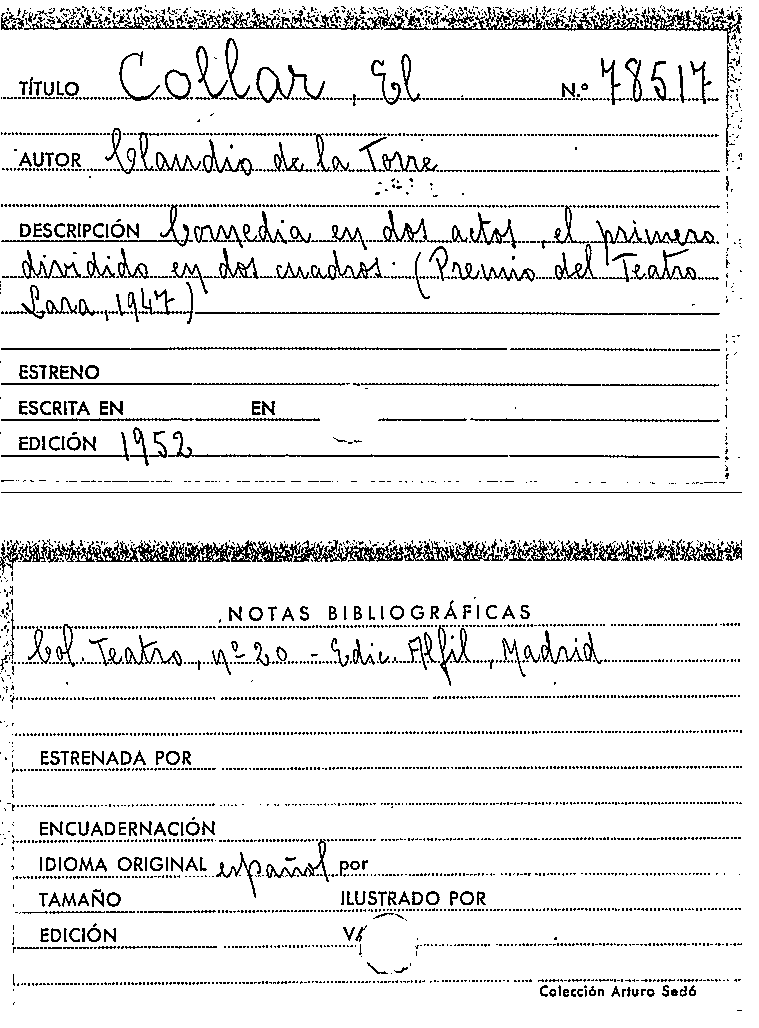 TÍTULO Collar, El N.º 78517
AUTOR Claudio de la Torre
DESCRIPCIÓN Comedia en dos actos, el primero
dividido en dos cuadros. (Premio del Teatro
Lara, 1947)
ESTRENO
ESCRITA EN EN
EDICIÓN 1952
NOTAS BIBLIOGRÁFICAS
Col. Teatro, nº 20 - Edic. Alfil, Madrid
ESTRENADA POR
ENCUADERNACIÓN
IDIOMA ORIGINAL español por
TAMAÑO ILUSTRADO POR
EDICIÓN
Colección Arturo Sedó